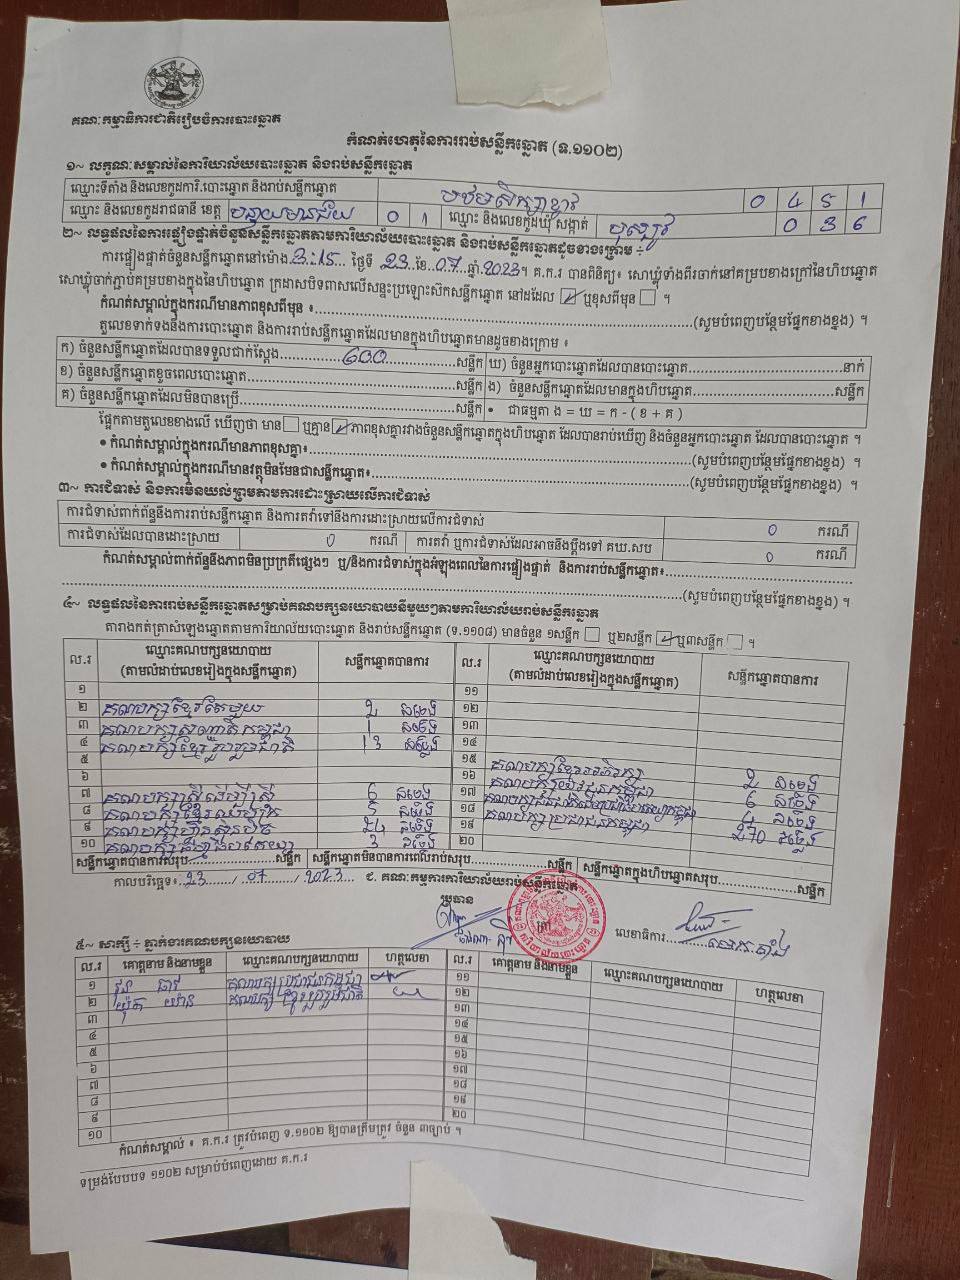 គណៈកម្មាធិការជាតិរៀបចំការបោះឆ្នោត
កំណត់ហេតុនៃការរាប់សន្លឹកឆ្នោត (ទ.១១០២)
១~ លក្ខណៈសម្គាល់នៃការិយាល័យបោះឆ្នោត និងរាប់សន្លឹកឆ្នោត
ឈ្មោះទីតាំង និងលេខកូដការិ.បោះឆ្នោត និងរាប់សន្លឹកឆ្នោត បឋមសិក្សា 0 4 5 1
ឈ្មោះ និងលេខកូដរាជធានី ខេត្ត បន្ទាយមានជ័យ 0 1 ឈ្មោះ និងលេខកូដឃុំ សង្កាត់ 0 3 6
២~ លទ្ធផលនៃការផ្ទៀងផ្ទាត់ចំនួនសន្លឹកឆ្នោតតាមការិយាល័យបោះឆ្នោត និងរាប់សន្លឹកឆ្នោតដូចខាងក្រោម ÷
ការផ្ទៀងផ្ទាត់ចំនួនសន្លឹកឆ្នោតនៅម៉ោង 3:15 ថ្ងៃទី 23 ខែ 07 ឆ្នាំ 2023 ។ គ.ក.រ បានពិនិត្យ៖ សោឃ្លុំទាំងពីរចាក់នៅគម្របខាងក្រៅនៃហិបឆ្នោត
សោឃ្លុំចាក់ភ្ជាប់គម្របខាងក្នុងនៃហិបឆ្នោត ក្រដាសបិទពាសលើសន្ទះប្រឡោះស៊កសន្លឹកឆ្នោត នៅដដែល ☑ ឬខុសពីមុន ☐ ។
កំណត់សម្គាល់ក្នុងករណីមានភាពខុសពីមុន ៖ (សូមបំពេញបន្ថែមផ្នែកខាងខ្នង) ។
តួលេខទាក់ទងនឹងការបោះឆ្នោត និងការរាប់សន្លឹកឆ្នោតដែលមានក្នុងហិបឆ្នោតមានដូចខាងក្រោម ៖
ក) ចំនួនសន្លឹកឆ្នោតដែលបានទទួលជាក់ស្តែង 600 សន្លឹក ឃ) ចំនួនអ្នកបោះឆ្នោតដែលបានបោះឆ្នោត នាក់
ខ) ចំនួនសន្លឹកឆ្នោតខូចពេលបោះឆ្នោត សន្លឹក ង) ចំនួនសន្លឹកឆ្នោតដែលមានក្នុងហិបឆ្នោត សន្លឹក
គ) ចំនួនសន្លឹកឆ្នោតដែលមិនបានប្រើ សន្លឹក • ជាធម្មតា ង = ឃ = ក - ( ខ + គ )
ផ្អែកតាមតួលេខខាងលើ ឃើញថា មាន ☐ ឬគ្មាន ☑ ភាពខុសគ្នារវាងចំនួនសន្លឹកឆ្នោតក្នុងហិបឆ្នោត ដែលបានរាប់ឃើញ និងចំនួនអ្នកបោះឆ្នោត ដែលបានបោះឆ្នោត ។
• កំណត់សម្គាល់ក្នុងករណីមានភាពខុសគ្នា៖ (សូមបំពេញបន្ថែមផ្នែកខាងខ្នង) ។
• កំណត់សម្គាល់ក្នុងករណីមានវត្ថុមិនមែនជាសន្លឹកឆ្នោត៖ (សូមបំពេញបន្ថែមផ្នែកខាងខ្នង) ។
៣~ ការជំទាស់ និងការមិនយល់ព្រមតាមការដោះស្រាយលើការជំទាស់
ការជំទាស់ពាក់ព័ន្ធនឹងការរាប់សន្លឹកឆ្នោត និងការតវ៉ាទៅនឹងការដោះស្រាយលើការជំទាស់ 0 ករណី
ការជំទាស់ដែលបានដោះស្រាយ 0 ករណី ការតវ៉ា ឬការជំទាស់ដែលអាចនឹងប្តឹងទៅ គឃ.សប 0 ករណី
កំណត់សម្គាល់ពាក់ព័ន្ធនឹងភាពមិនប្រក្រតីផ្សេងៗ ឬ/និងការជំទាស់ក្នុងអំឡុងពេលនៃការផ្ទៀងផ្ទាត់ និងការរាប់សន្លឹកឆ្នោត៖
(សូមបំពេញបន្ថែមផ្នែកខាងខ្នង) ។
៤~ លទ្ធផលនៃការរាប់សន្លឹកឆ្នោតសម្រាប់គណបក្សនយោបាយនីមួយៗតាមការិយាល័យរាប់សន្លឹកឆ្នោត
តារាងកត់ត្រាសំឡេងឆ្នោតតាមការិយាល័យបោះឆ្នោត និងរាប់សន្លឹកឆ្នោត (ទ.១១០៨) មានចំនួន ១សន្លឹក ☐ ឬ២សន្លឹក ☑ ឬ៣សន្លឹក ☐ ។
ល.រ ឈ្មោះគណបក្សនយោបាយ (តាមលំដាប់លេខរៀងក្នុងសន្លឹកឆ្នោត) សន្លឹកឆ្នោតបានការ ល.រ ឈ្មោះគណបក្សនយោបាយ (តាមលំដាប់លេខរៀងក្នុងសន្លឹកឆ្នោត) សន្លឹកឆ្នោតបានការ
១ ១១
២ គណបក្សខ្មែរតែមួយ 2 សំឡេង ១២
៣ គណបក្សសញ្ជាតិកម្ពុជា សំឡេង ១៣
៤ គណបក្សខ្មែររួបរួមជាតិ 13 សំឡេង ១៤
៥ ១៥ គណបក្សខ្មែរអភិរក្ស 2 សំឡេង
៦ ១៦ គណបក្សយុវជនកម្ពុជា 6 សំឡេង
៧ គណបក្សស្រីដើម្បីស្រី 6 សំឡេង ១៧ 4 សំឡេង
៨ គណបក្សខ្មែរឈប់ក្រ 5 សំឡេង ១៨ គណបក្សប្រជាជនកម្ពុជា 270 សំឡេង
៩ គណបក្សហ៊្វុនស៊ិនប៉ិច 24 សំឡេង ១៩
១០ 3 សំឡេង ២០
សន្លឹកឆ្នោតបានការសរុប សន្លឹក សន្លឹកឆ្នោតមិនបានការពេលរាប់សរុប សន្លឹក សន្លឹកឆ្នោតក្នុងហិបឆ្នោតសរុប សន្លឹក
កាលបរិច្ឆេទ៖ 23 / 07 / 2023 ជ. គណៈកម្មការការិយាល័យរាប់សន្លឹកឆ្នោត
ប្រធាន
លេខាធិការ
៥~ សាក្សី ÷ ភ្នាក់ងារគណបក្សនយោបាយ
ល.រ គោត្តនាម និងនាមខ្លួន ឈ្មោះគណបក្សនយោបាយ ហត្ថលេខា ល.រ គោត្តនាម និងនាមខ្លួន ឈ្មោះគណបក្សនយោបាយ ហត្ថលេខា
១ គណបក្សប្រជាជនកម្ពុជា ១១
២ គណបក្សខ្មែររួបរួមជាតិ ១២
៣ ១៣
៤ ១៤
៥ ១៥
៦ ១៦
៧ ១៧
៨ ១៨
៩ ១៩
១០ ២០
កំណត់សម្គាល់ ៖ គ.ក.រ ត្រូវបំពេញ ទ.១១០២ ឱ្យបានត្រឹមត្រូវ ចំនួន ៣ច្បាប់ ។
ទម្រង់បែបបទ ១១០២ សម្រាប់បំពេញដោយ គ.ក.រ